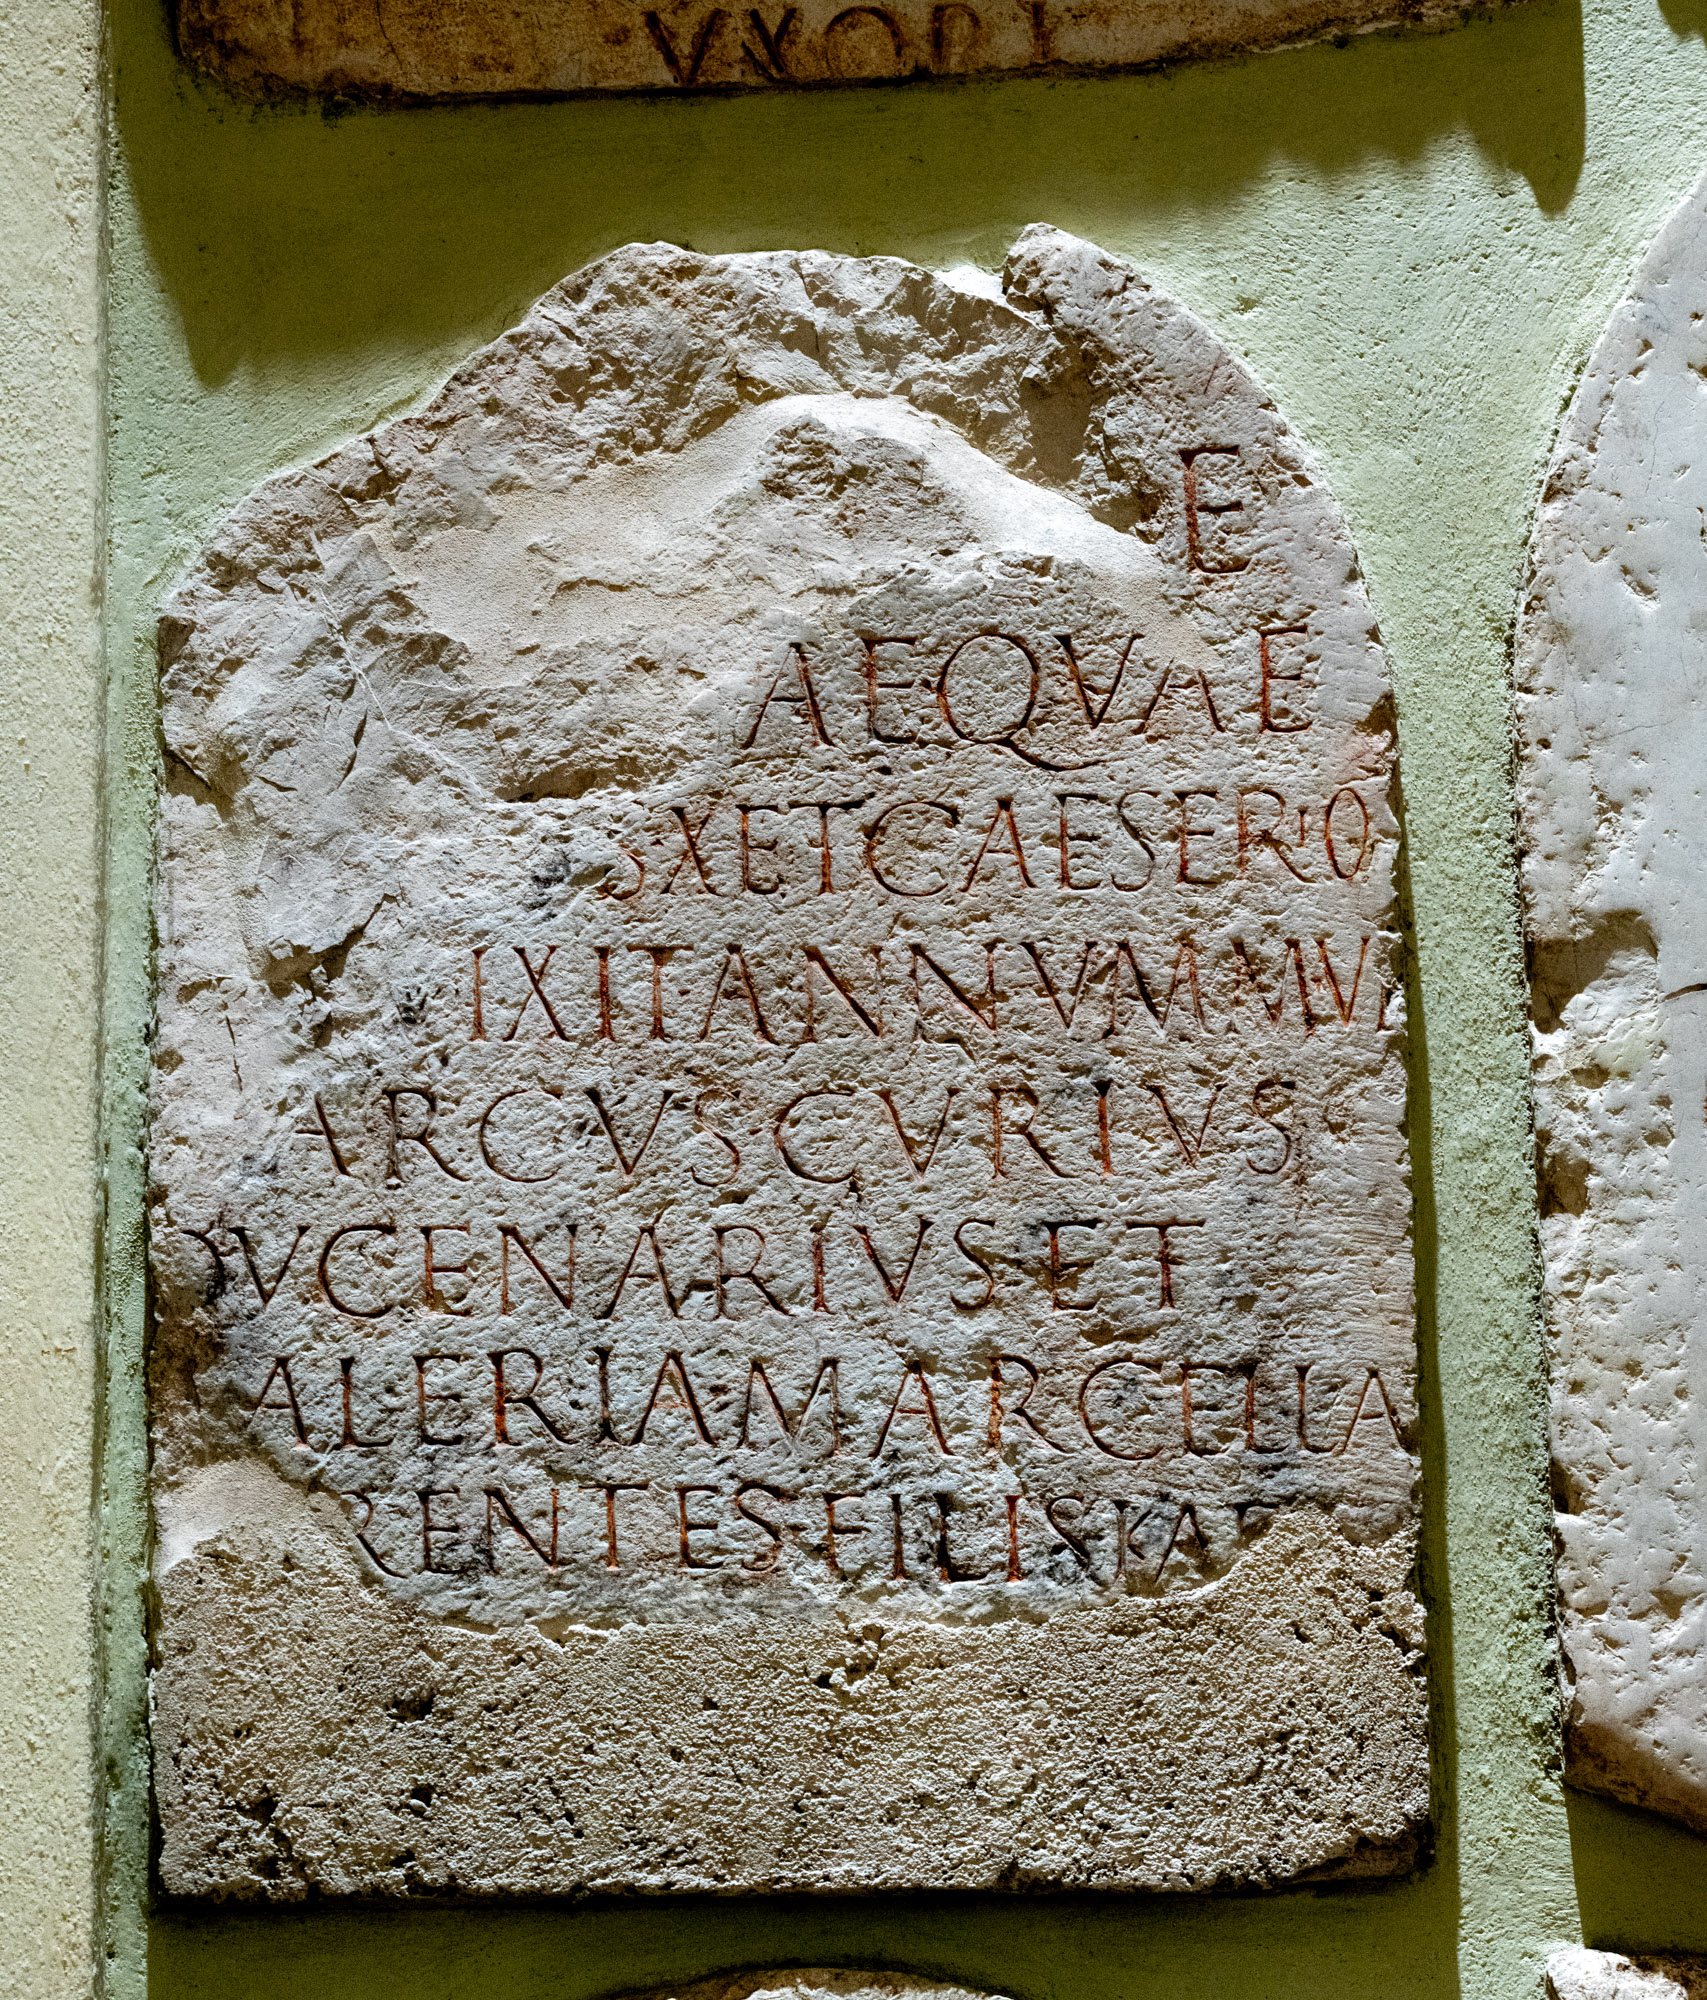 VXORI
E
AEQVAE
SXETCAESERIO
IXITANNVMVIIVI
ARCVSCVRIVS
DVCENARIVSET
ALERIAMARCELLA
RENTESFILISKAE